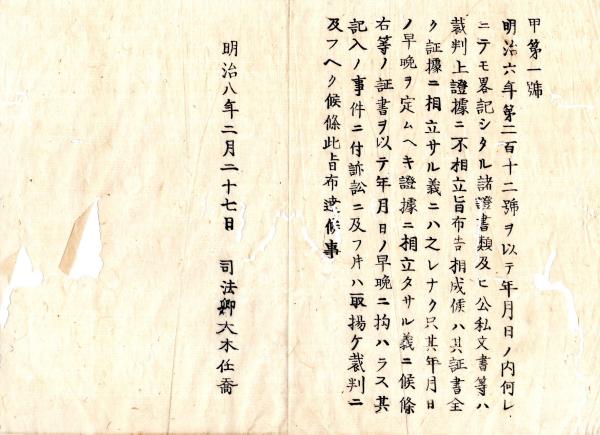 甲第一號
明治六年第二百十二號ヲ以テ年月日ノ内何レ
ニテモ畧記シタル諸證書類及ヒ公私文書等ハ
裁判上證據ニ不相立旨布告相成候ハ其証書全
ク証據ニ相立サル義ニハ之レナク只其年月日
ノ早晩ヲ定ムヘキ證據ニ相立タサル義ニ候條
右等ノ証書ヲ以テ年月日ノ早晩ニ拘ハラス其
記入ノ事件ニ付訴訟ニ及フ片ハ取揚ケ裁判ニ
及フヘク候條此旨布達候事
明治八年二月二十七日 司法卿大木任喬